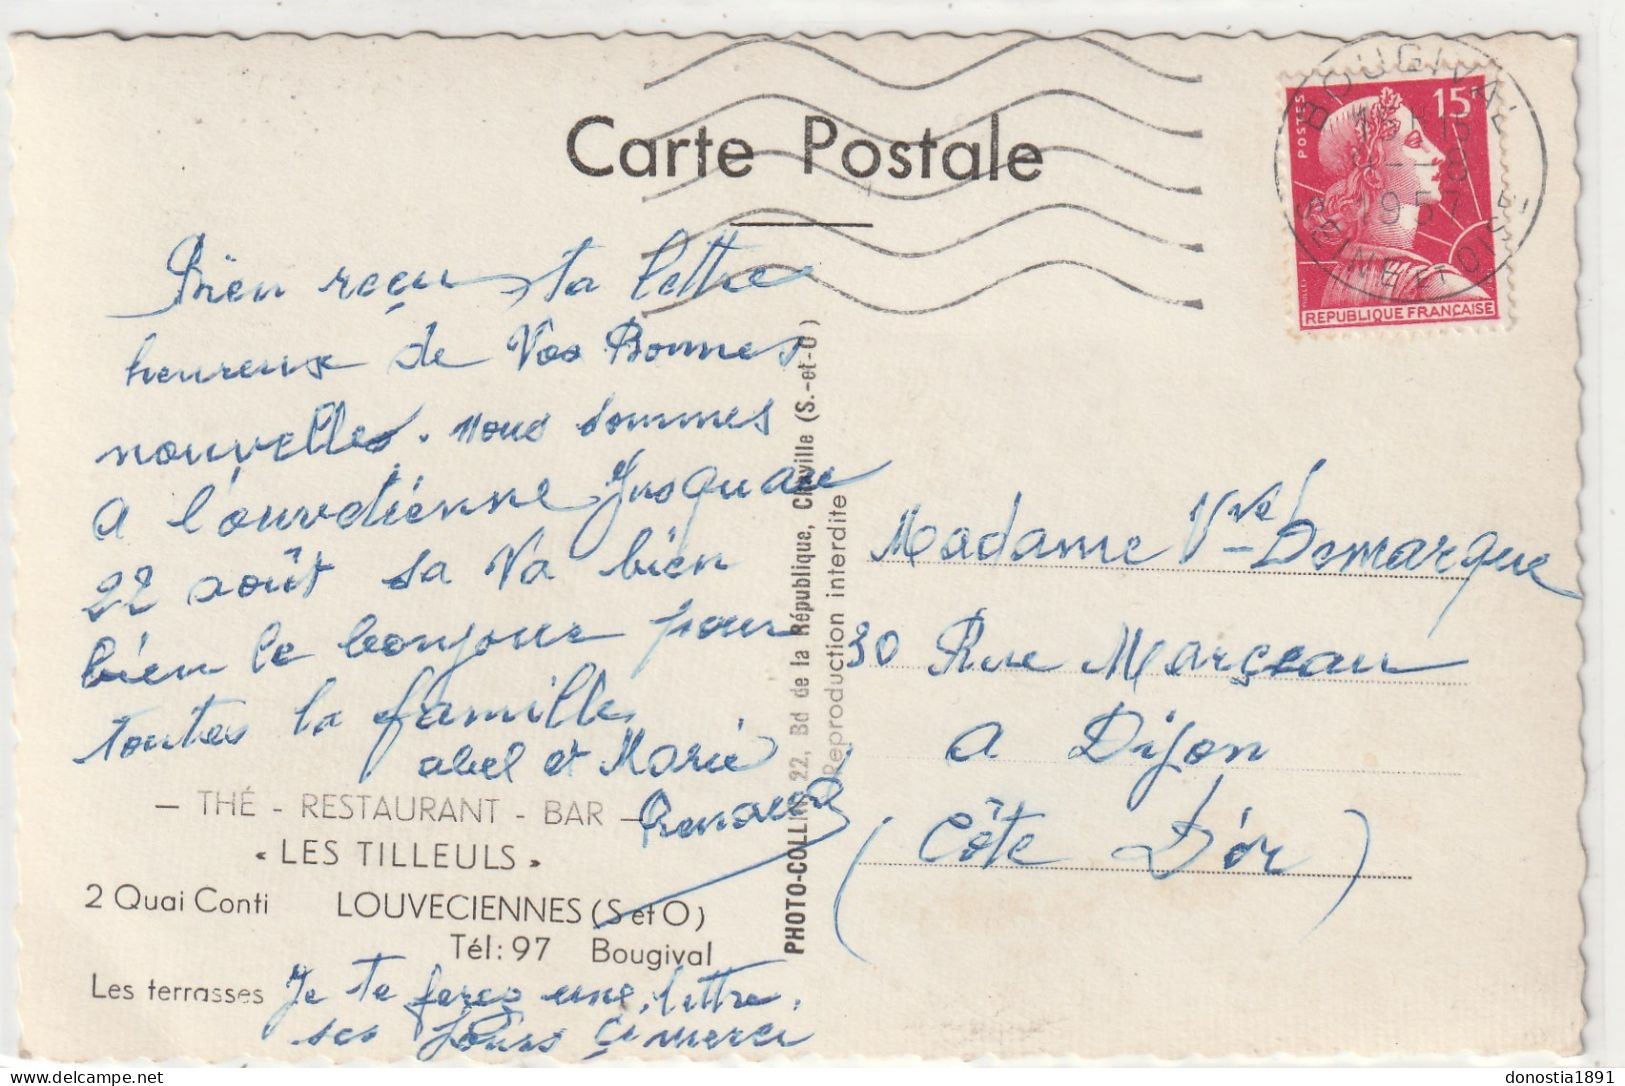 Carte Postale
BOUGIVAL
15H15
4--8
1957
SEINE ET OISE
POSTES
15F
MULLER
REPUBLIQUE FRANÇAISE
Bien reçu ta lettre
heureux de Vos Bonnes
nouvelles. nous sommes
A l'ouvetienne Jusquau
22 août sa Va bien
bien le bonjour pour
toutes la famille
abel et Marie
Renaud
— THÉ - RESTAURANT - BAR —
« LES TILLEULS »
2 Quai Conti LOUVECIENNES (S et O)
Tél: 97 Bougival
Les terrasses
Je te ferez une lettre.
ses Jours Ci merci
PHOTO-COLLIN 22, Bd de la République, Chaville (S.-et-O)
Reproduction interdite
Madame Vve Demarque
30 Rue Marçeau
a Dijon
(Côte D'or)
delcampe.net
donostia1891